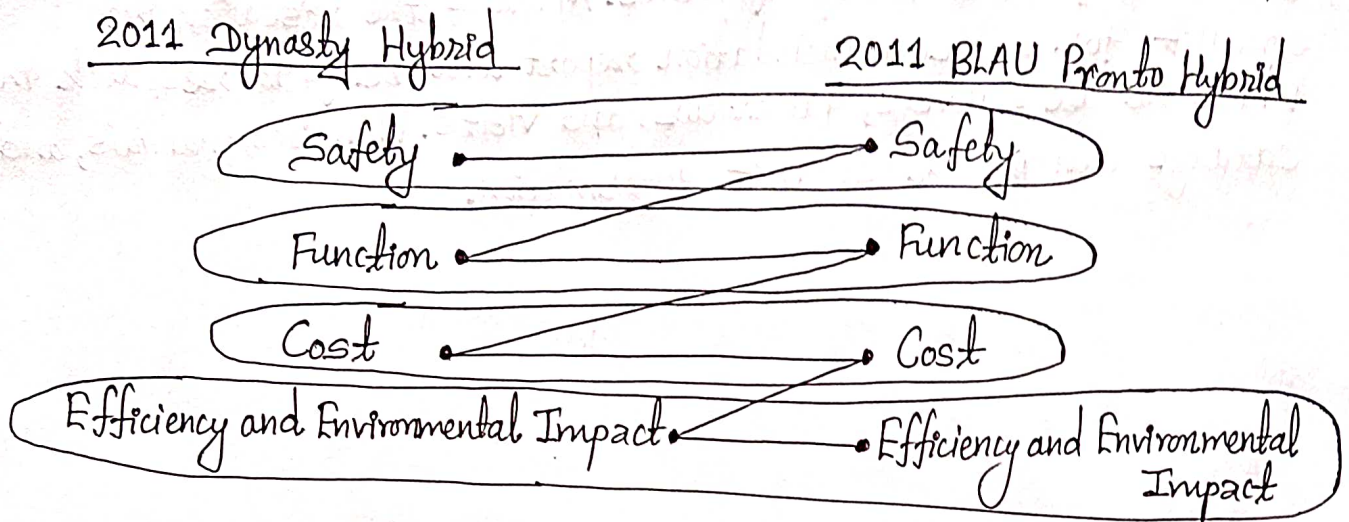 2011 Dynasty Hybrid
2011 BLAU Pronto Hybrid
Safety Safety
Function Function
Cost Cost
Efficiency and Environmental Impact Efficiency and Environmental
Impact